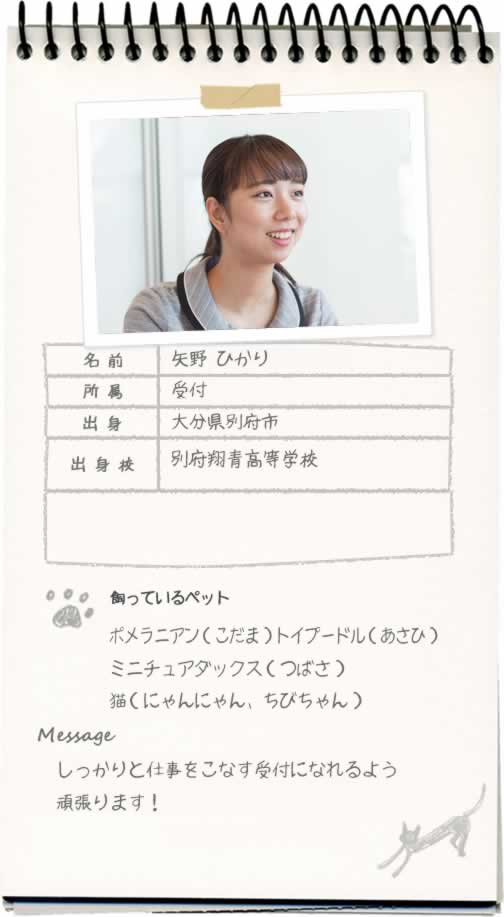 名前 矢野 ひかり
所属 受付
出身 大分県別府市
出身校 別府翔青高等学校
飼っているペット
ポメラニアン(こだま)トイプードル(あさひ)
ミニチュアダックス(つばさ)
猫(にゃんにゃん、ちびちゃん)
Message
しっかりと仕事をこなす受付になれるよう
頑張ります!